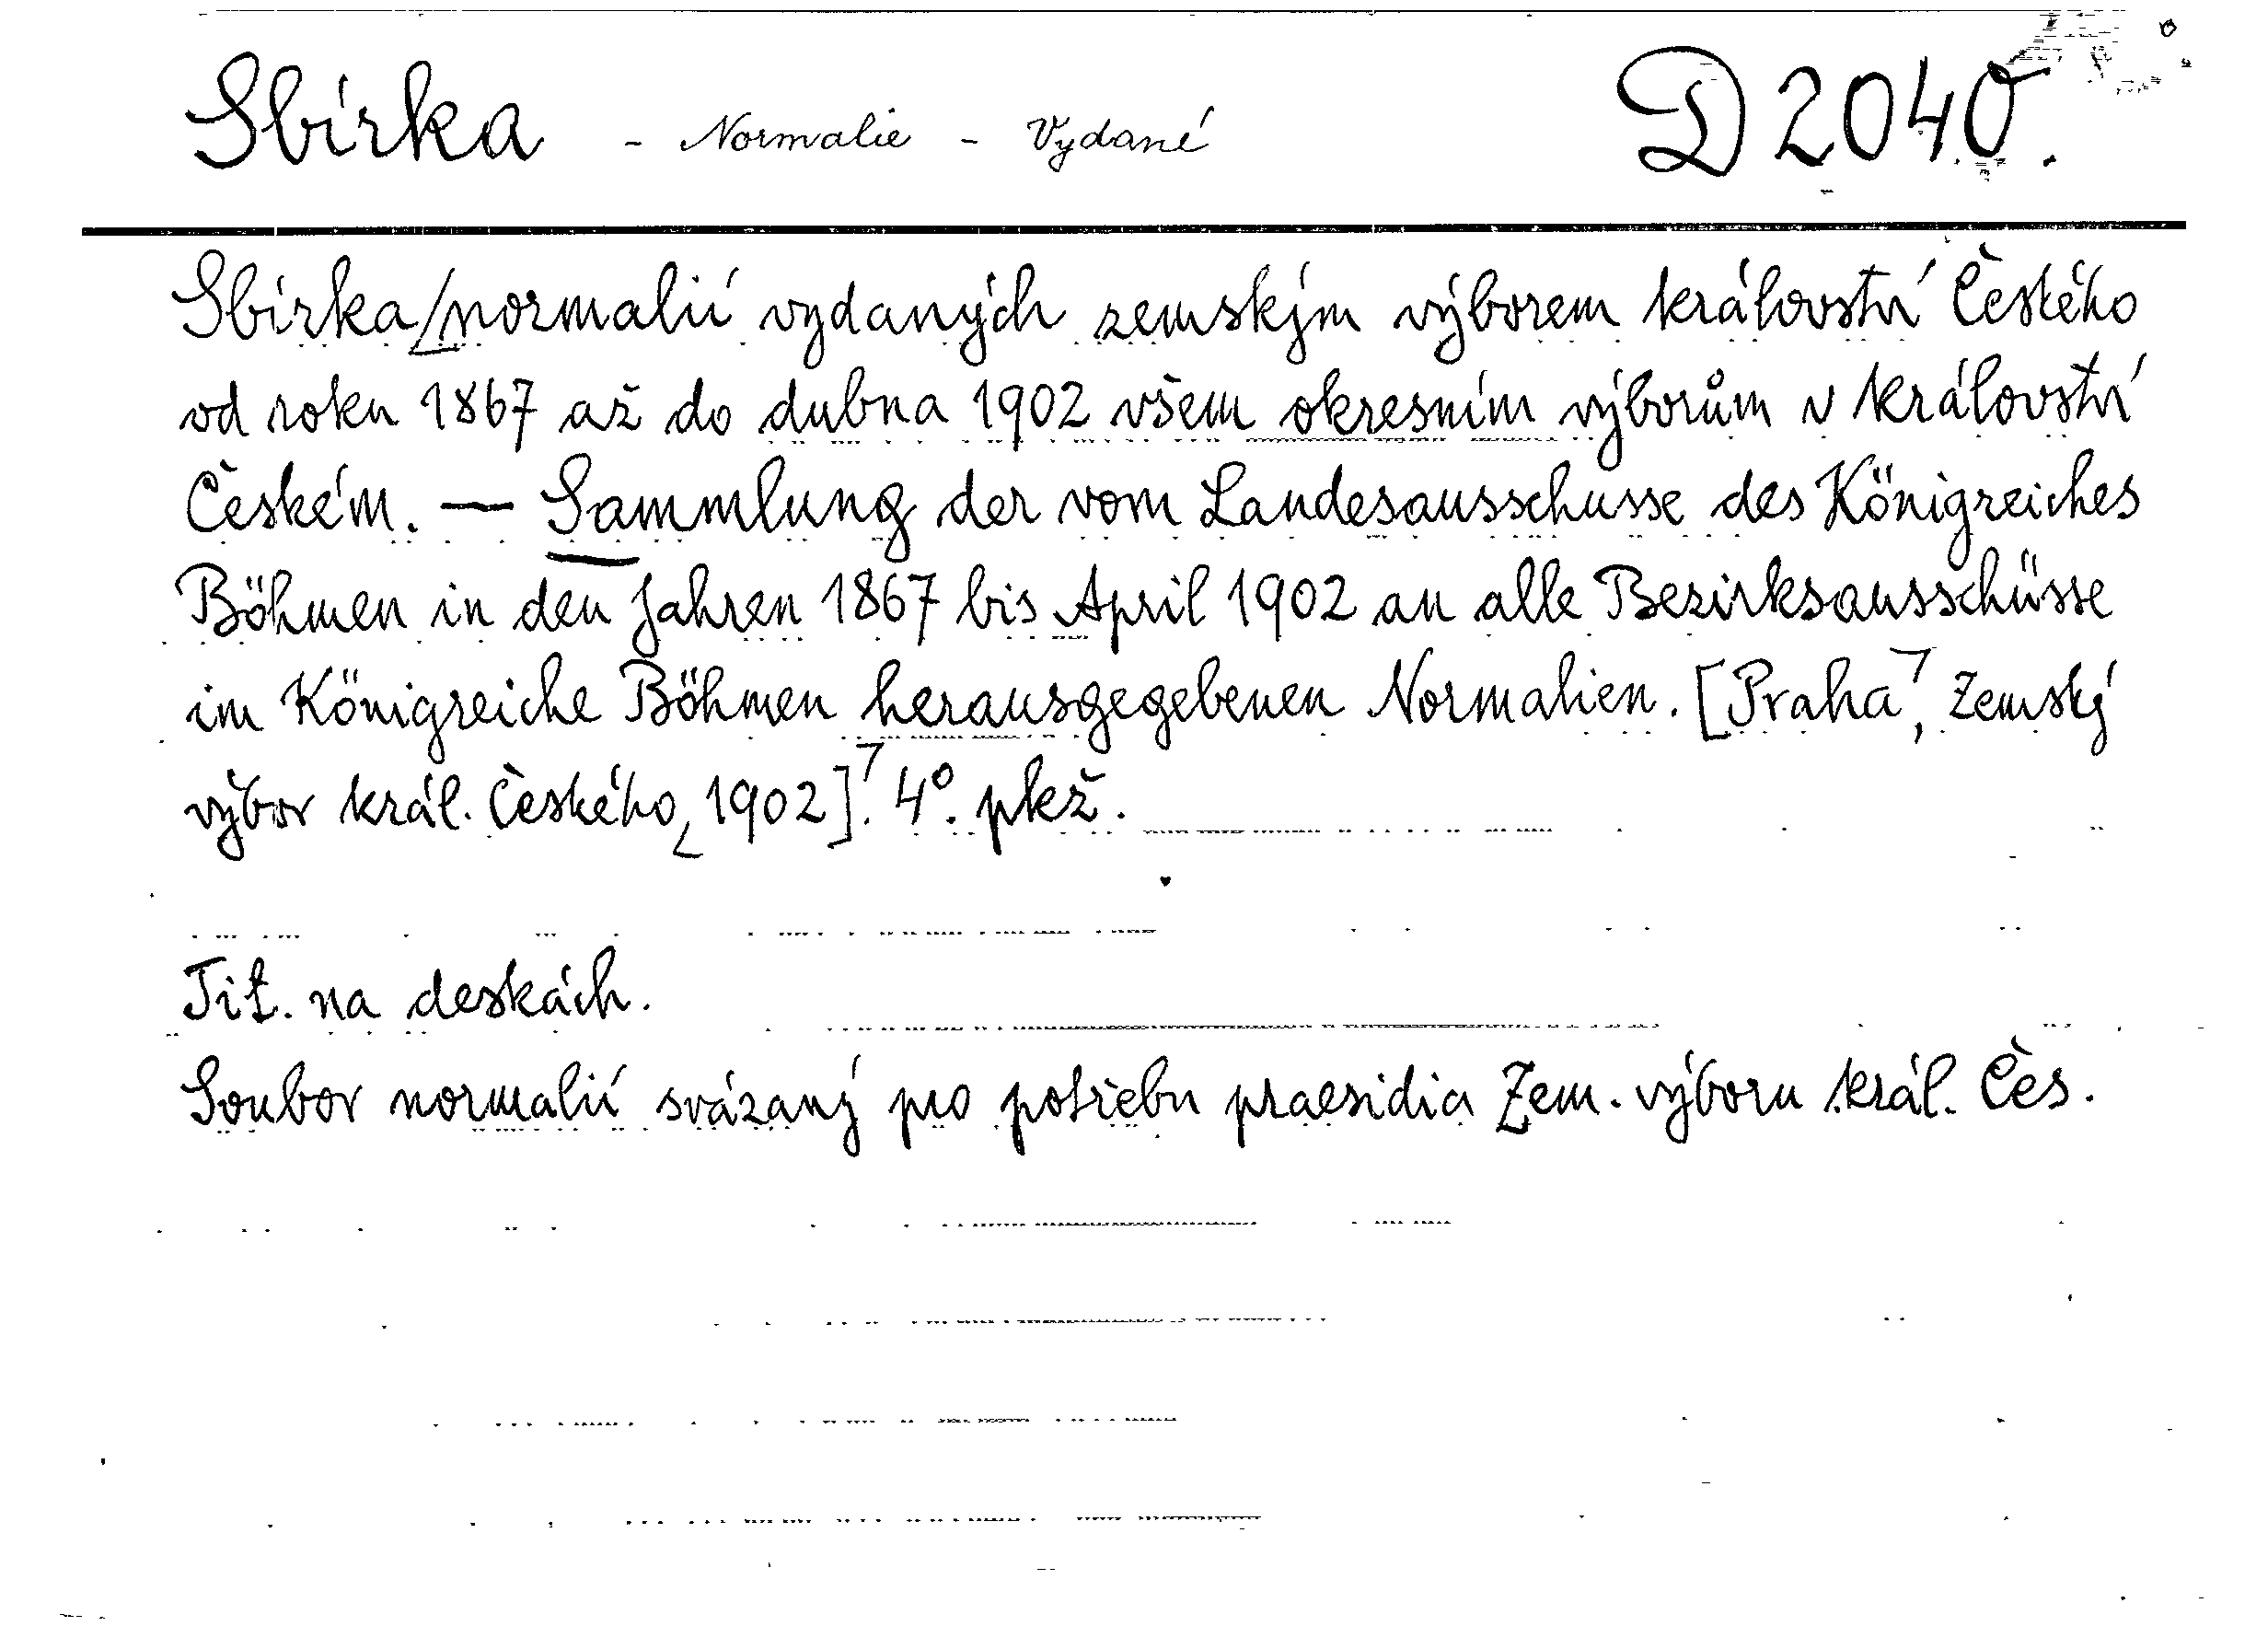 Sbírka - Normalie - Vydané D 2040.
Sbírka/normalií vydaných zemským výborem království Českého
od roku 1867 až do dubna 1902 všem okresním výborům v království
Českém. — Sammlung der vom Landesausschusse des Königreiches
Böhmen in den Jahren 1867 bis April 1902 an alle Bezirksausschüsse
im Königreiche Böhmen herausgegebenen Normalien. [Praha, Zemský
výbor král. Českého, 1902]. 4°. plsž.
Tit. na deskách.
Soubor normalií svázaný pro potřebu praesidia Zem. výboru král. Čes.